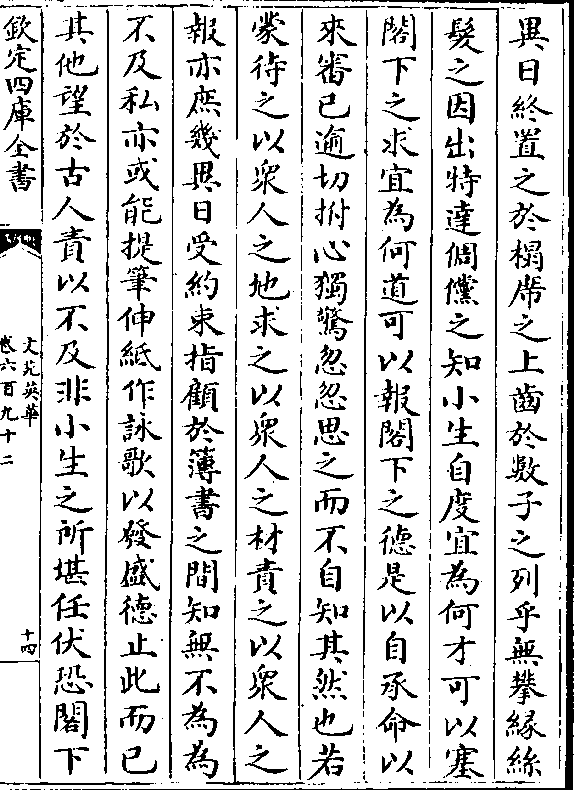 異日終置之於榻席之上齒於數子之列乎無攀緣絲
髮之因出特達倜儻之知小生自度宜為何才可以塞
閣下之求宜為何道可以報閣下之德是以自承命以
來審已逾切拊心獨驚忽忽思之而不自知其然也若
蒙待之以衆人之地求之以衆人之材責之以衆人之
報亦庶幾異日受約束指顧於簿書之間知無不為為
不及私亦或能提筆伸紙作詠歌以發盛德止此而已
其他望於古人責以不及非小生之所堪任伏恐閣下
欽定四庫全書
文苑英華
卷六百九十二
十四